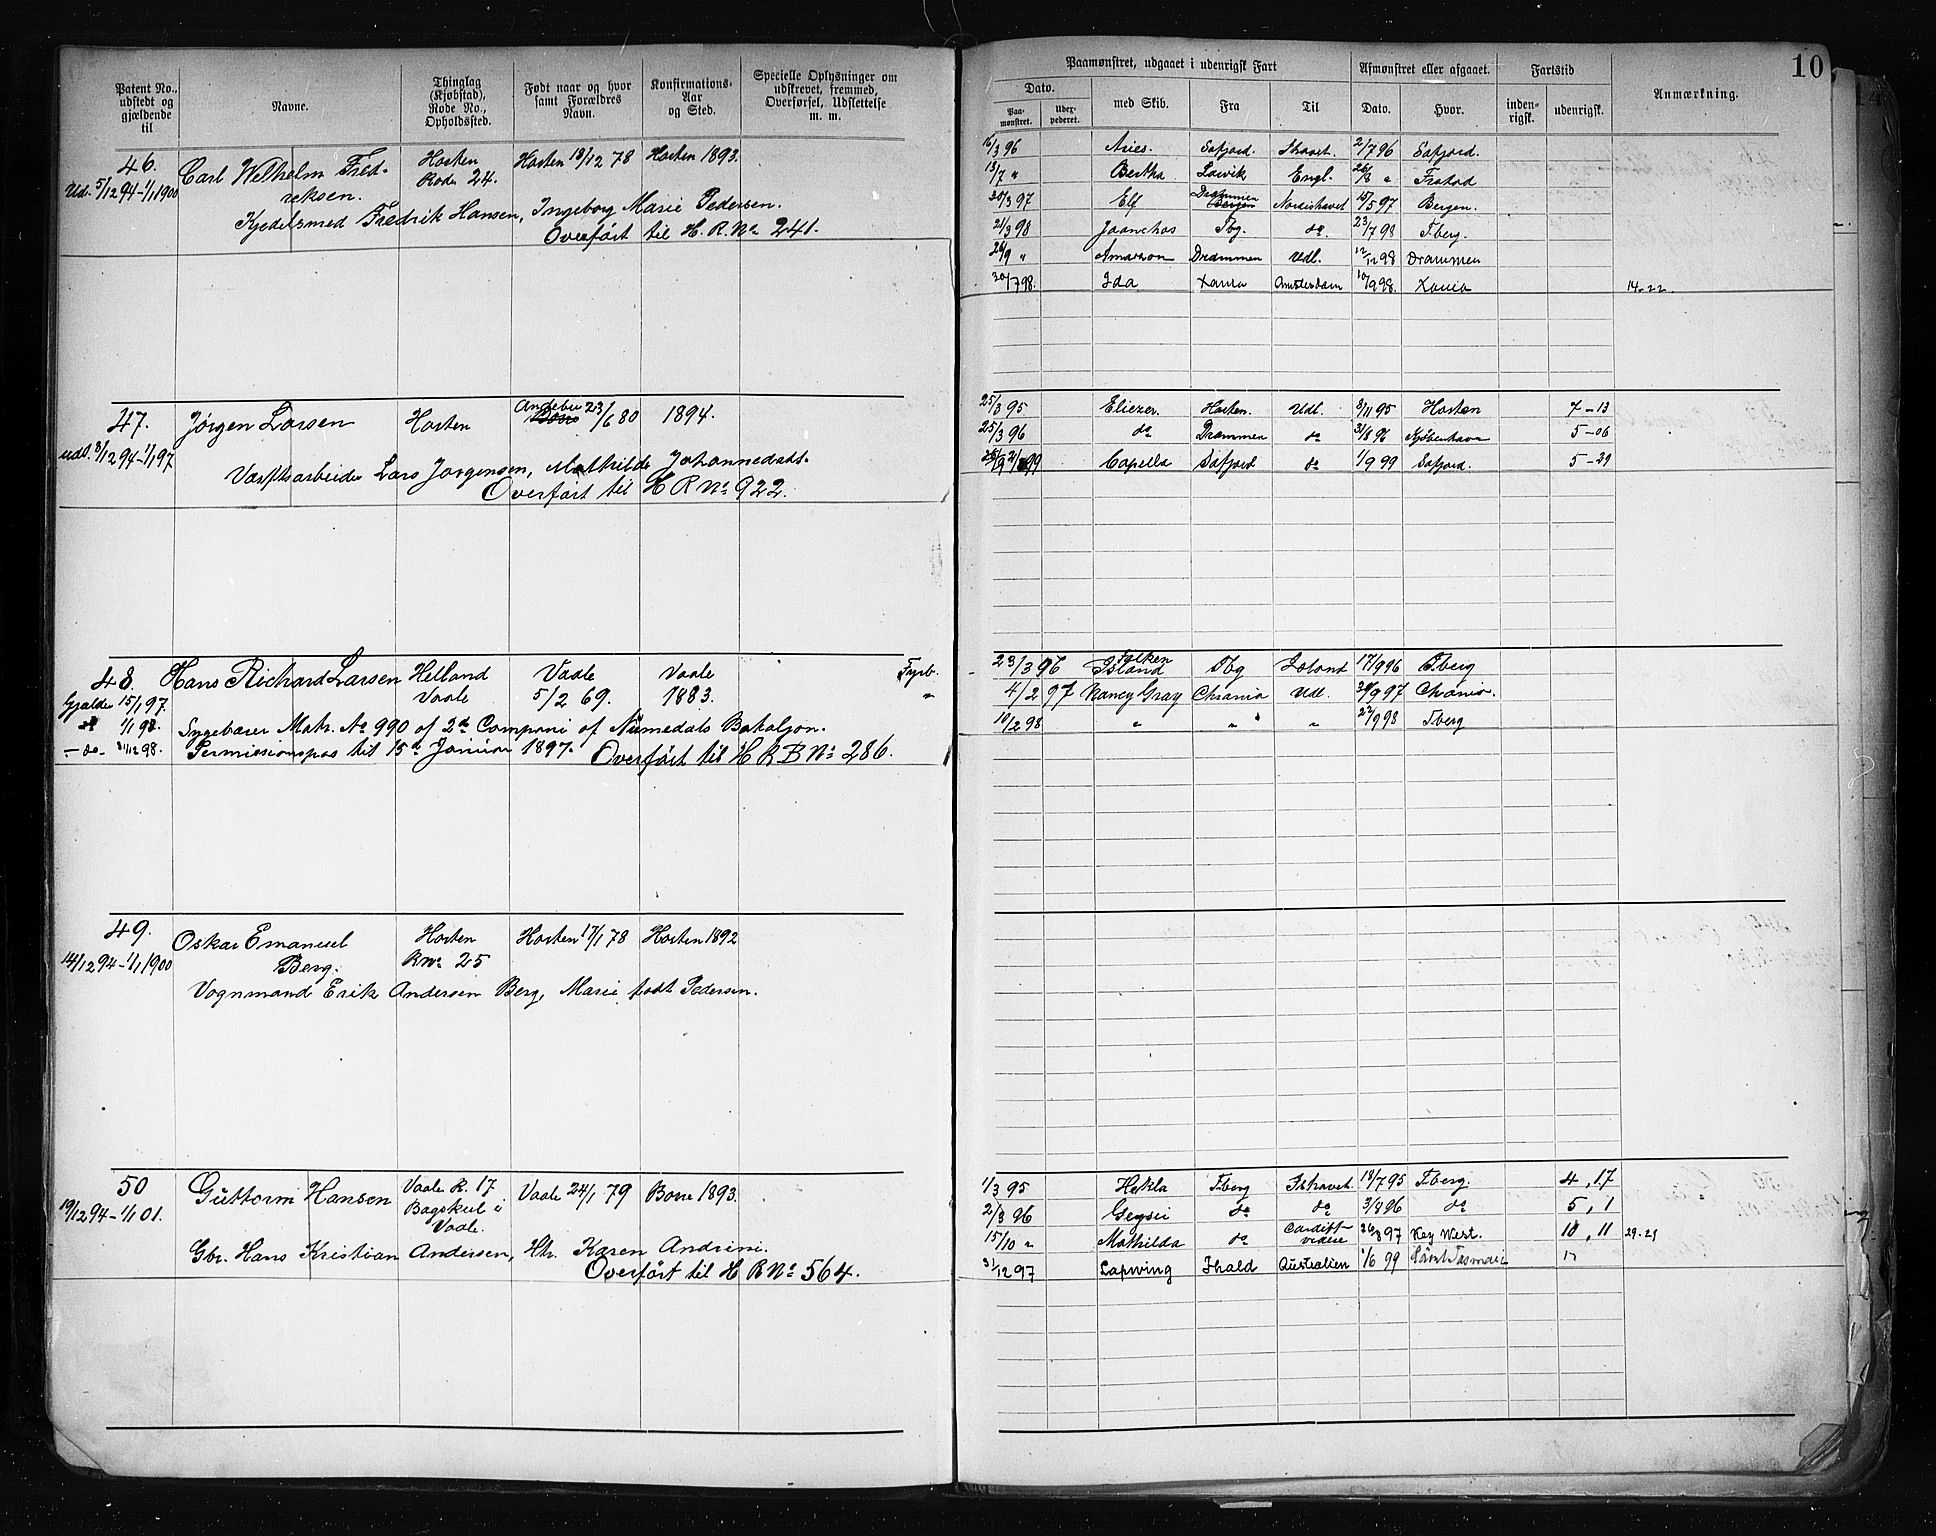 Patent No., udstedt og gjældende til
Navne.
Thinglag (Kjøbstad), Rode No., Opholdssted.
Født naar og hvor samt Forældres Navn.
Konfirmations-Aar og Sted.
Specielle Oplysninger om udskrevet, fremmed, Overførsel, Udslettelse m. m.
46. Carl Wilhelm Fred- Horten Horten 18/12 78 Horten 1893.
Ud. 5/12 94-1/1 1900 reksen. Rode 24.
Kjedelsmed Fredrik Hansen, Ingeborg Marie Pedersen.
Overført til H. R. No 241.
47. Jørgen Larsen Horten Andebu 23/6 80 1894.
udst. 3/12 94-1/1 97
Værftsarbeider Lars Jørgensen, Mathilde Johannesdatt.
Overført til H R No 922.
48. Hans Richard Larsen Helland Vaale Vaale Fyrb.
Gjælder 15/1 97. Vaale 5/2 69. 1883. "
do 1/1 98. Ingebærer Matr. No 990 of 2d Compani af Numedals Bataljon.
- do - 31/12 98. Permissionspas til 15d Januar 1897. Overført til H R B No 286.
49. Oskar Emanuel Horten Horten 17/1 78 Horten 1892
14/12 94-1/1 1900 Berg. R No 25
Vognmand Erik Andersen Berg, Marie født Pedersen.
50 Guttorm Hansen Vaale R. 17 Vaale 24/1 79 Borre 1893.
19/12 94-1/1 01. Bagskul i
Vaale.
Gbr. Hans Kristian Andersen, Htr. Karen Andrine.
Overført til H R No 564.
10
Paamønstret, udgaaet i udenrigsk Fart
Afmønstret eller afgaaet.
Fartstid
Anmærkning.
Dato. med Skib. Fra Til Dato. Hvor. inden-rigsk. udenrigsk.
Paa-mønstret. Udex-pederet.
16/3 96 Aries. Safjord. Ishavet. 2/7 96 Safjord.
13/7 " Bertha Larvik Engl. "  Frstad
20/3 97 Elf Drammen Nordishavet 15/5 97 Bergen.
21/3 98 Tbg. do. 23/7 98 Tberg.
26/9 " Drammen Udl. 12/12 98 Drammen
30/7 98. Ida Xania Amsterdam 10/9 98. Xania 14-22
25/3 95 Eliezer. Horten. Udl. 8/11 95 Horten 7-13
25/3 96 do Drammen do 31/8 96 Kjøbenhavn 5-06
99 Capella Safjord do 1/9 99 Safjord. 5-29
23/3 96 Falken
Island Tbg Island 17/9 96 Tberg
4/2 97 Nancy Gray Chrania Udl. 97 Chrania.
10/2 98 " " " " 22/9 98 Tberg
1/3 95 Hekla Tberg Ishavet 18/7 95 Tberg. 4, 17
2/3 96 do do 3/8 96 do 5, 1
15/10 " Mathilda do Cardiff
videre 26/8 97 Key West. 10, 11 29-21
31/12 97 Lapwing Fhald Australien 1/6 99